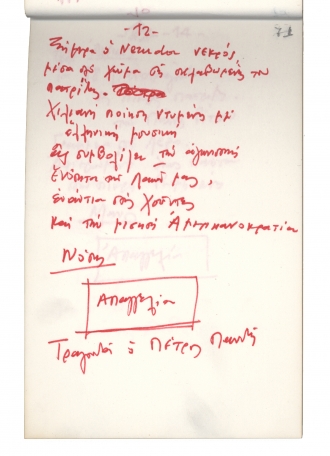 -12-
71
Σήμερα ο Νερούδα νεκρός
μέσα στο χώμα της σκλαβωμένης του
πατρίδας.
Χιλιανή ποίηση ντυμένη με
ελληνική μουσική
Ας συμβολίζει την αγωνιστική
Ενότητα των Λαών μας,
ενάντια στις Χούντες
και την μισητή Αμερικανοκρατία
Νόση
Απαγγελία
Τραγουδά ο Πέτρος Πανδής